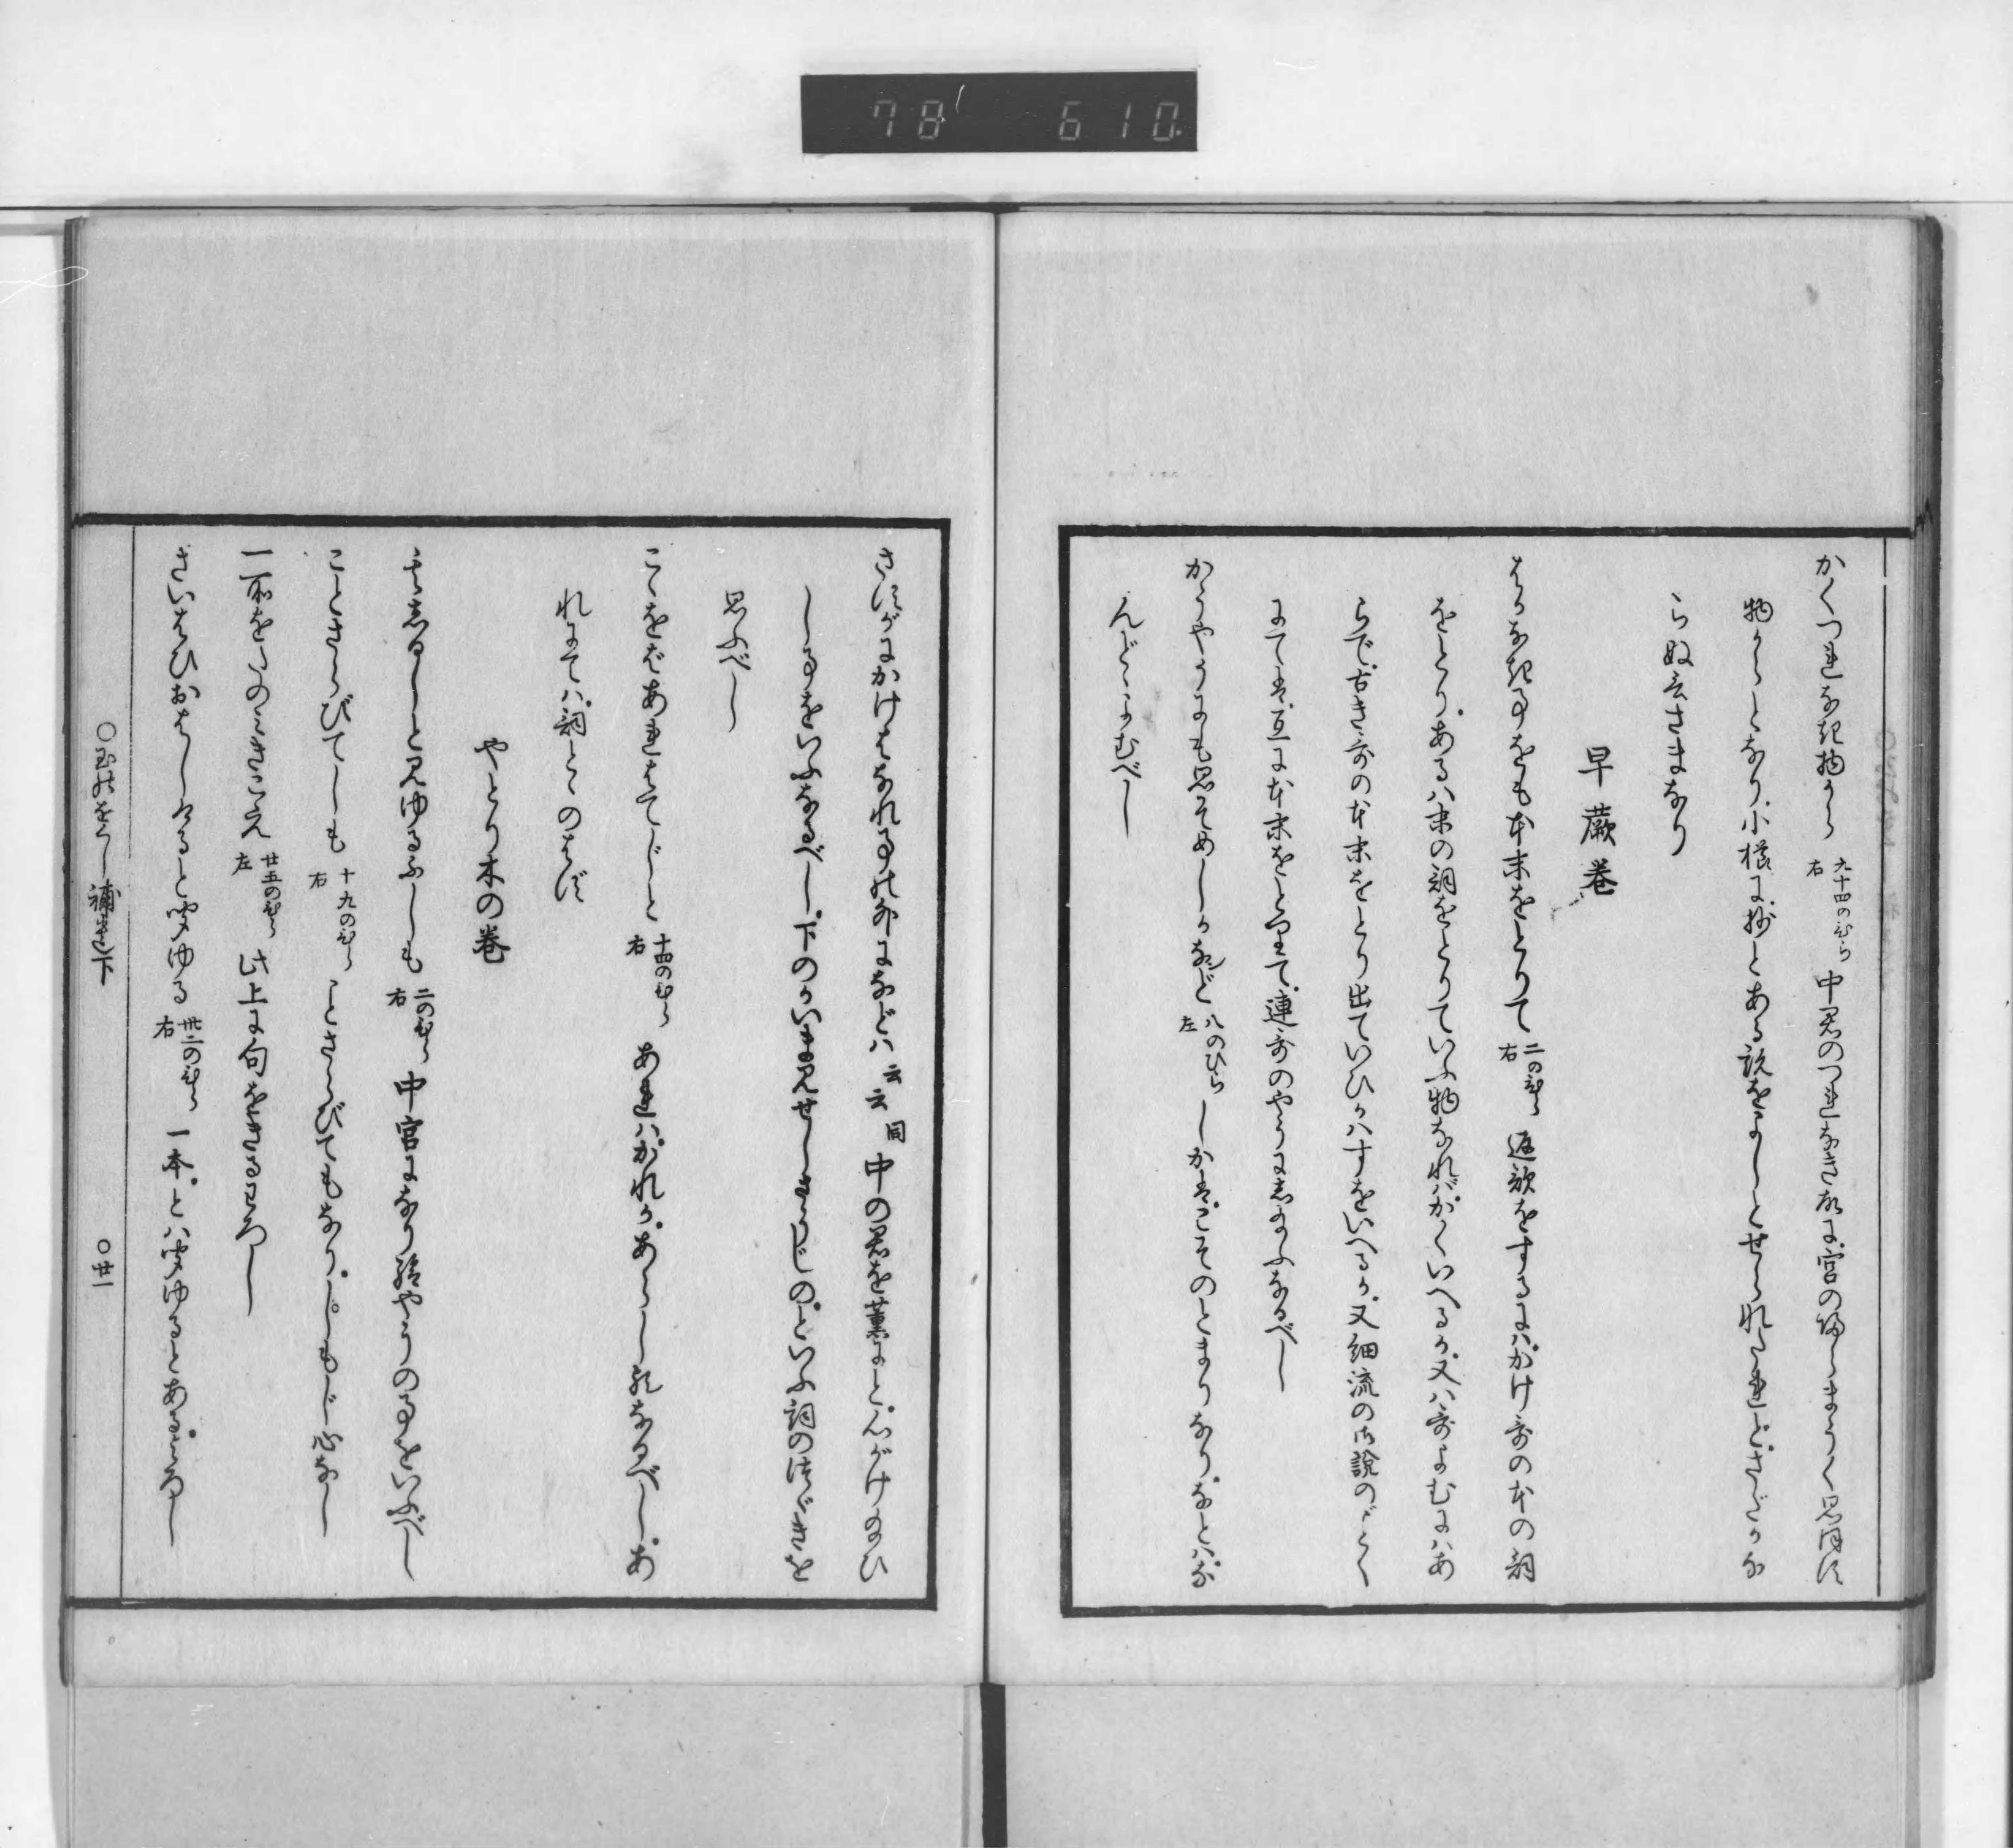 78 610
かくつれなき物から 九十四のひら右 中君のつれなき故に、宮の帰らまうく思ほす
物からとなり、小櫛に抄とある説をよしとせられたれど、さだかな
らぬ言さまなり
早蕨巻
はかなき事をも本末をとりて 二のひら右 返歌をするにハ、かけ哥の本の詞
をとり、あるハ末の詞をとりていふ物なれバ、かくいへるか、又ハ哥よむにハあ
らで、古き哥の本末をとり出ていひかハすをいへるか、又細流の御説のごとく
にては、互に本末をとなへて、連哥のやうに志給ふなるべし
かうやうにも思そめしかなど 八のひら左 しかは、こそのとまりなり、なとハ、な
んどゝよむべし
さすがにかけはなれ事の外になどハ云々 同 中の君を薫にと、心がけ給ひ
し事をいふなるべし、下のかいま見せしまじの、といふ詞のつゞきを
思ふべし
こゝをばあれはてじと 十四のひら右 あれハ、かれか、あらし歟なるべし、あ
れにてハ、詞とゝのはず
やとり木の巻
志るしと見ゆるふしも 二のひら右 中宮になり給やうの事をいふべし
ことさらびてしも 十九のひら右 ことさらびてもなり、しもじ心なし
一所をたのみきこえ 廿五のひら左 此上に句をきるわろし
さいはひおはしけると聞ゆる 卅二のひら右 一本、とハ聞ゆるとある、よろし
○玉のをくし補遺下 ○廿一